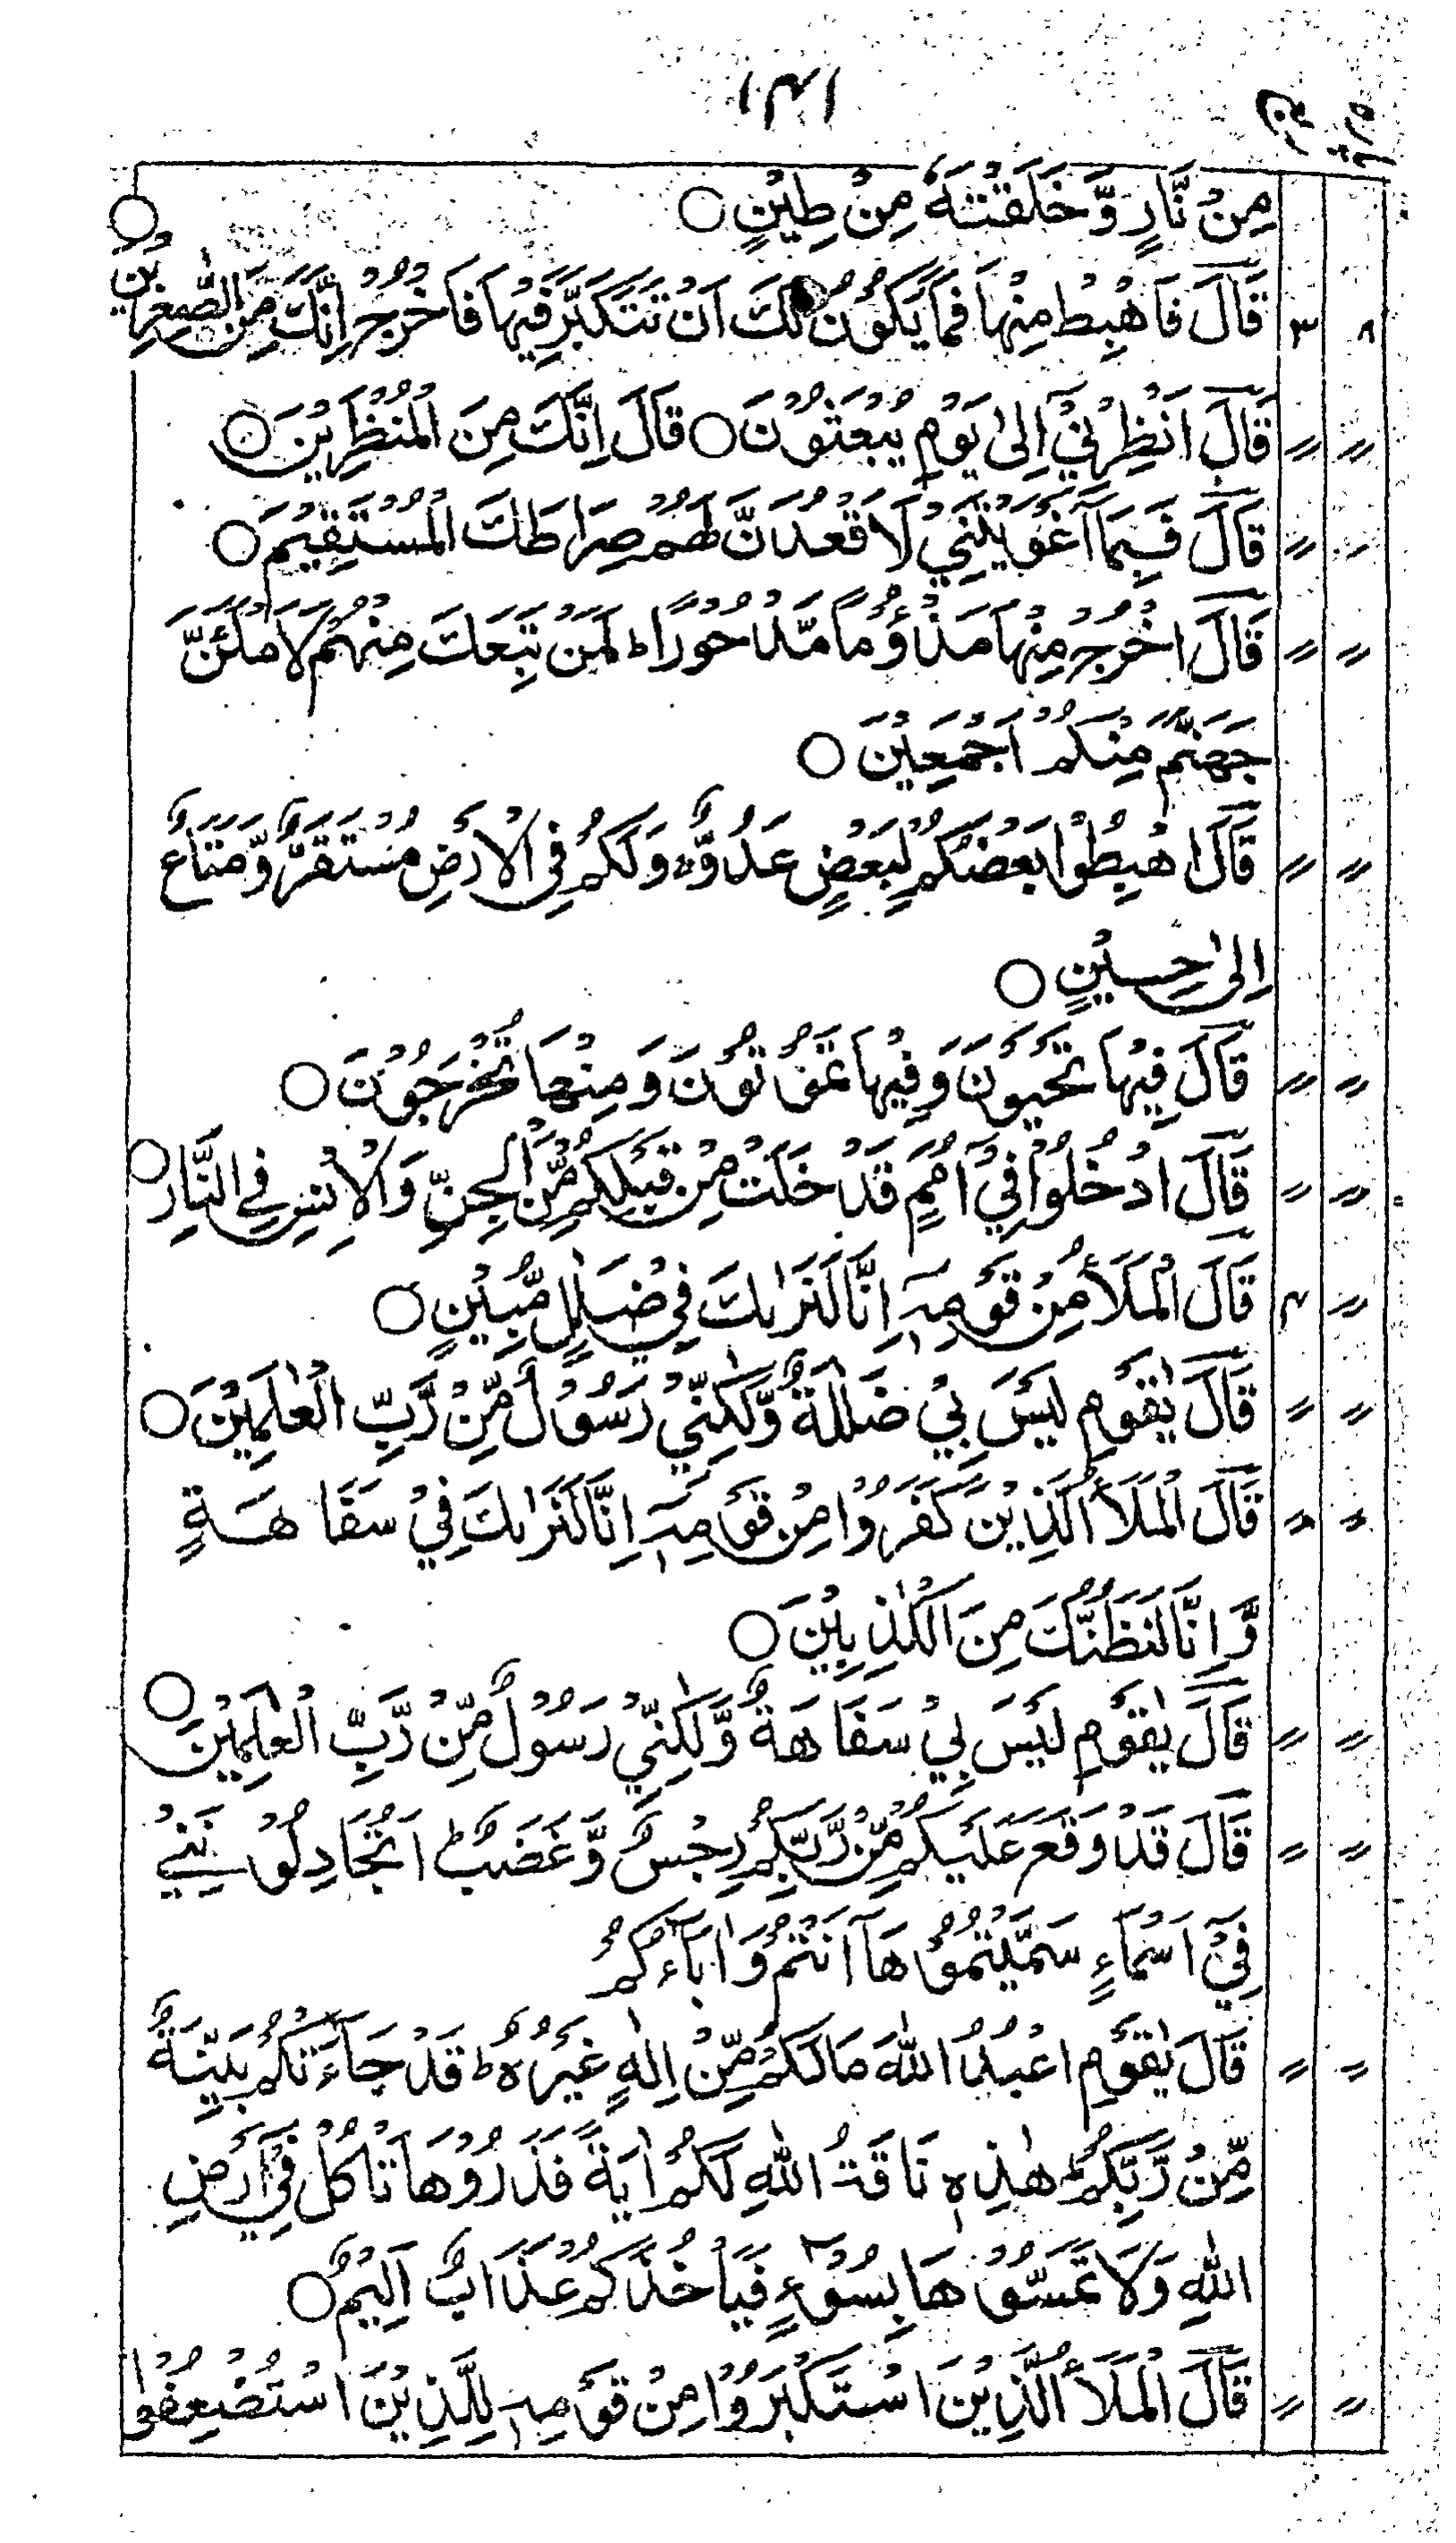 ۱۴۱
پارہ رکوع
مِنْ نَّارٍ وَّخَلَقْتَهٗ مِنْ طِيْنٍ ○
۸ ۳ قَالَ فَاهْبِطْ مِنْهَا فَمَا يَكُوْنُ لَكَ اَنْ تَتَكَبَّرَ فِيْهَا فَاخْرُجْ اِنَّكَ مِنَ الصّٰغِرِيْنَ ○
〃 〃 قَالَ اَنْظِرْنِيْٓ اِلٰى يَوْمِ يُبْعَثُوْنَ ○ قَالَ اِنَّكَ مِنَ الْمُنْظَرِيْنَ ○
〃 〃 قَالَ فَبِمَآ اَغْوَيْتَنِيْ لَاَقْعُدَنَّ لَهُمْ صِرَاطَكَ الْمُسْتَقِيْمَ ○
〃 〃 قَالَ اخْرُجْ مِنْهَا مَذْءُوْمًا مَّدْحُوْرًا ط لَمَنْ تَبِعَكَ مِنْهُمْ لَاَمْلَئَنَّ
جَهَنَّمَ مِنْكُمْ اَجْمَعِيْنَ ○
〃 〃 قَالَ اهْبِطُوْا بَعْضُكُمْ لِبَعْضٍ عَدُوٌّ ج وَلَكُمْ فِي الْاَرْضِ مُسْتَقَرٌّ وَّمَتَاعٌ
اِلٰى حِيْنٍ ○
〃 〃 قَالَ فِيْهَا تَحْيَوْنَ وَفِيْهَا تَمُوْتُوْنَ وَمِنْهَا تُخْرَجُوْنَ ○
〃 〃 قَالَ ادْخُلُوْا فِيْٓ اُمَمٍ قَدْ خَلَتْ مِنْ قَبْلِكُمْ مِّنَ الْجِنِّ وَالْاِنْسِ فِي النَّارِ ○
〃 ۴ قَالَ الْمَلَاُ مِنْ قَوْمِهٖٓ اِنَّا لَنَرٰىكَ فِيْ ضَلٰلٍ مُّبِيْنٍ ○
〃 〃 قَالَ يٰقَوْمِ لَيْسَ بِيْ ضَلٰلَةٌ وَّلٰكِنِّيْ رَسُوْلٌ مِّنْ رَّبِّ الْعٰلَمِيْنَ ○
〃 〃 قَالَ الْمَلَاُ الَّذِيْنَ كَفَرُوْا مِنْ قَوْمِهٖٓ اِنَّا لَنَرٰىكَ فِيْ سَفَاهَةٍ
وَّاِنَّا لَنَظُنُّكَ مِنَ الْكٰذِبِيْنَ ○
〃 〃 قَالَ يٰقَوْمِ لَيْسَ بِيْ سَفَاهَةٌ وَّلٰكِنِّيْ رَسُوْلٌ مِّنْ رَّبِّ الْعٰلَمِيْنَ ○
〃 〃 قَالَ قَدْ وَقَعَ عَلَيْكُمْ مِّنْ رَّبِّكُمْ رِجْسٌ وَّغَضَبٌ ط اَتُجَادِلُوْنَنِيْ
فِيْٓ اَسْمَآءٍ سَمَّيْتُمُوْهَآ اَنْتُمْ وَاٰبَآؤُكُمْ
〃 〃 قَالَ يٰقَوْمِ اعْبُدُوا اللّٰهَ مَا لَكُمْ مِّنْ اِلٰهٍ غَيْرُهٗ ط قَدْ جَآءَتْكُمْ بَيِّنَةٌ
مِّنْ رَّبِّكُمْ ط هٰذِهٖ نَاقَةُ اللّٰهِ لَكُمْ اٰيَةً فَذَرُوْهَا تَاْكُلْ فِيْٓ اَرْضِ
اللّٰهِ وَلَا تَمَسُّوْهَا بِسُوْٓءٍ فَيَاْخُذَكُمْ عَذَابٌ اَلِيْمٌ ○
〃 〃 قَالَ الْمَلَاُ الَّذِيْنَ اسْتَكْبَرُوْا مِنْ قَوْمِهٖ لِلَّذِيْنَ اسْتُضْعِفُوْا